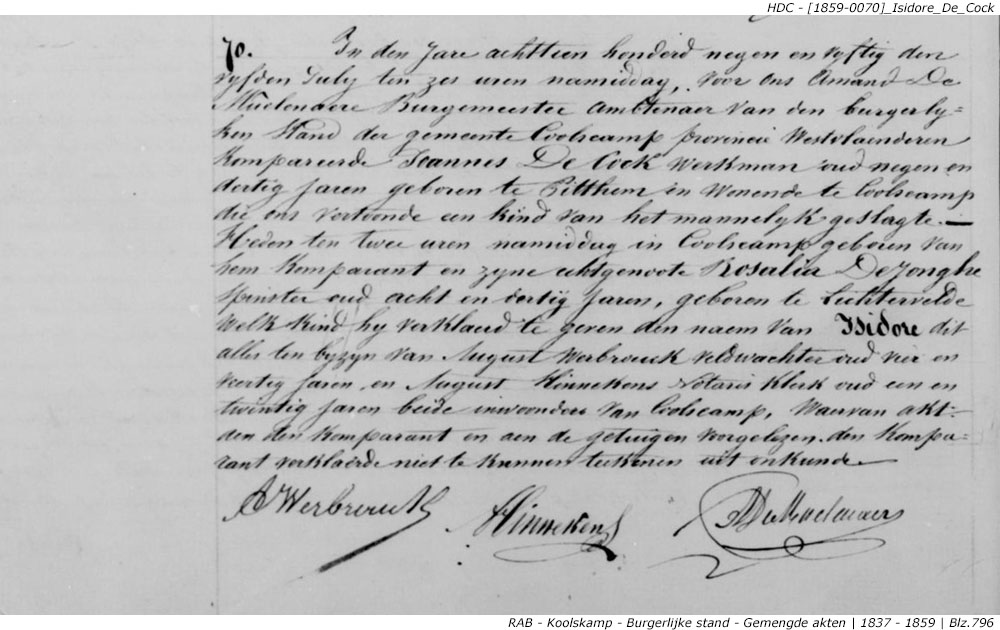 HDC - [1859-0070]_Isidore_De_Cock
70. In den Jare achttien honderd negen en vyftig den
vyfden July ten zes uren namiddag, voor ons Amand De
Muelenaere Burgemeester Ambtenaer van den burgerly=
ken Stand der gemeente Coolscamp provincie Westvlaenderen
kompareerde Joannes De Cock werkman oud negen en
dertig Jaren geboren te Pitthem en wonende te Coolscamp
die ons vertoonde een kind van het mannelyk geslagte. —
Heden ten twee uren namiddag in Coolscamp geboren van
hem komparant en zyne echtgenoote Rosalia De Jonghe
spinster oud acht en dertig Jaren, geboren te Lichtervelde
welk kind hy verklaerd te geven den naem van Isidore dit
alles ten byzyn van August Werbrouck veldwachter oud vier en
veertig jaren, en August Hinnekens Notaris Klerk oud een en
twintig jaren beide inwoonders van Coolscamp, Waervan akt
den komparant en aen de getuigen voorgelezen. den kompa=
rant verklaerde niet te kunnen teekenen uit onkunde —
A Werbrouck
A Hinnekens
A De Muelenaere
RAB - Koolskamp - Burgerlijke stand - Gemengde akten | 1837 - 1859 | Blz.796